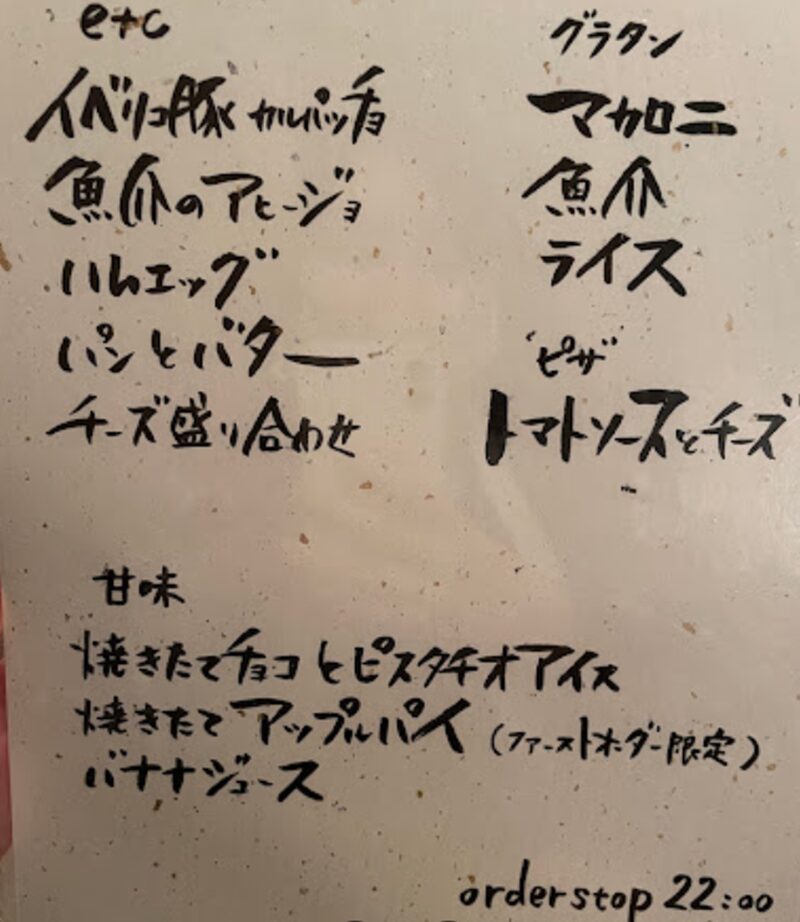 etc
イベリコ豚カルパッチョ
魚介のアヒージョ
ハムエッグ
パンとバター
チーズ盛り合わせ
グラタン
マカロニ
魚介
ライス
ピザ
トマトソースとチーズ
甘味
焼きたてチョコとピスタチオアイス
焼きたてアップルパイ（ファーストオーダー限定）
バナナジュース
orderstop 22:00